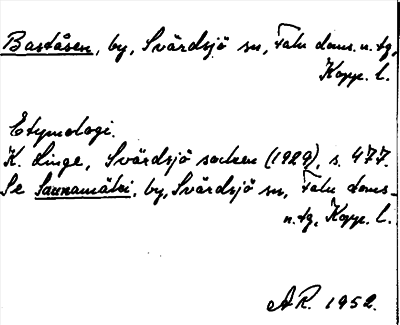 Baståsen, by, Svärdsjö sn, Falu doms. o. tg,
Kopp. l.
Etymologi.
K. Linge, Svärdsjö socken (1929), s. 477.
Se Saunamäki, by, Svärdsjö sn, Falu doms-
o. tg, Kopp. l.
AR. 1952.